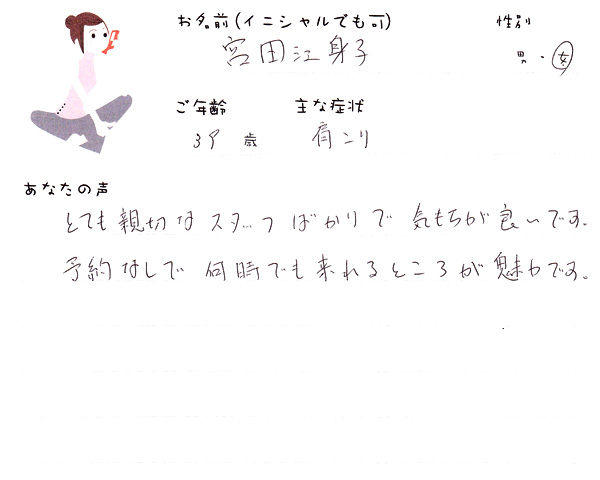 お名前(イニシャルでも可)
性別
宮田江身子
男・女
ご年齢
主な症状
39歳
肩こり
あなたの声
とても親切なスタッフばかりで気もちが良いです。
予約なしで何時でも来れるところが魅力です。